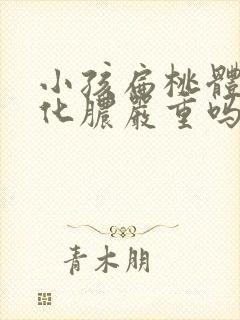 小孩扁桃體
化膿嚴重吗
青木朋